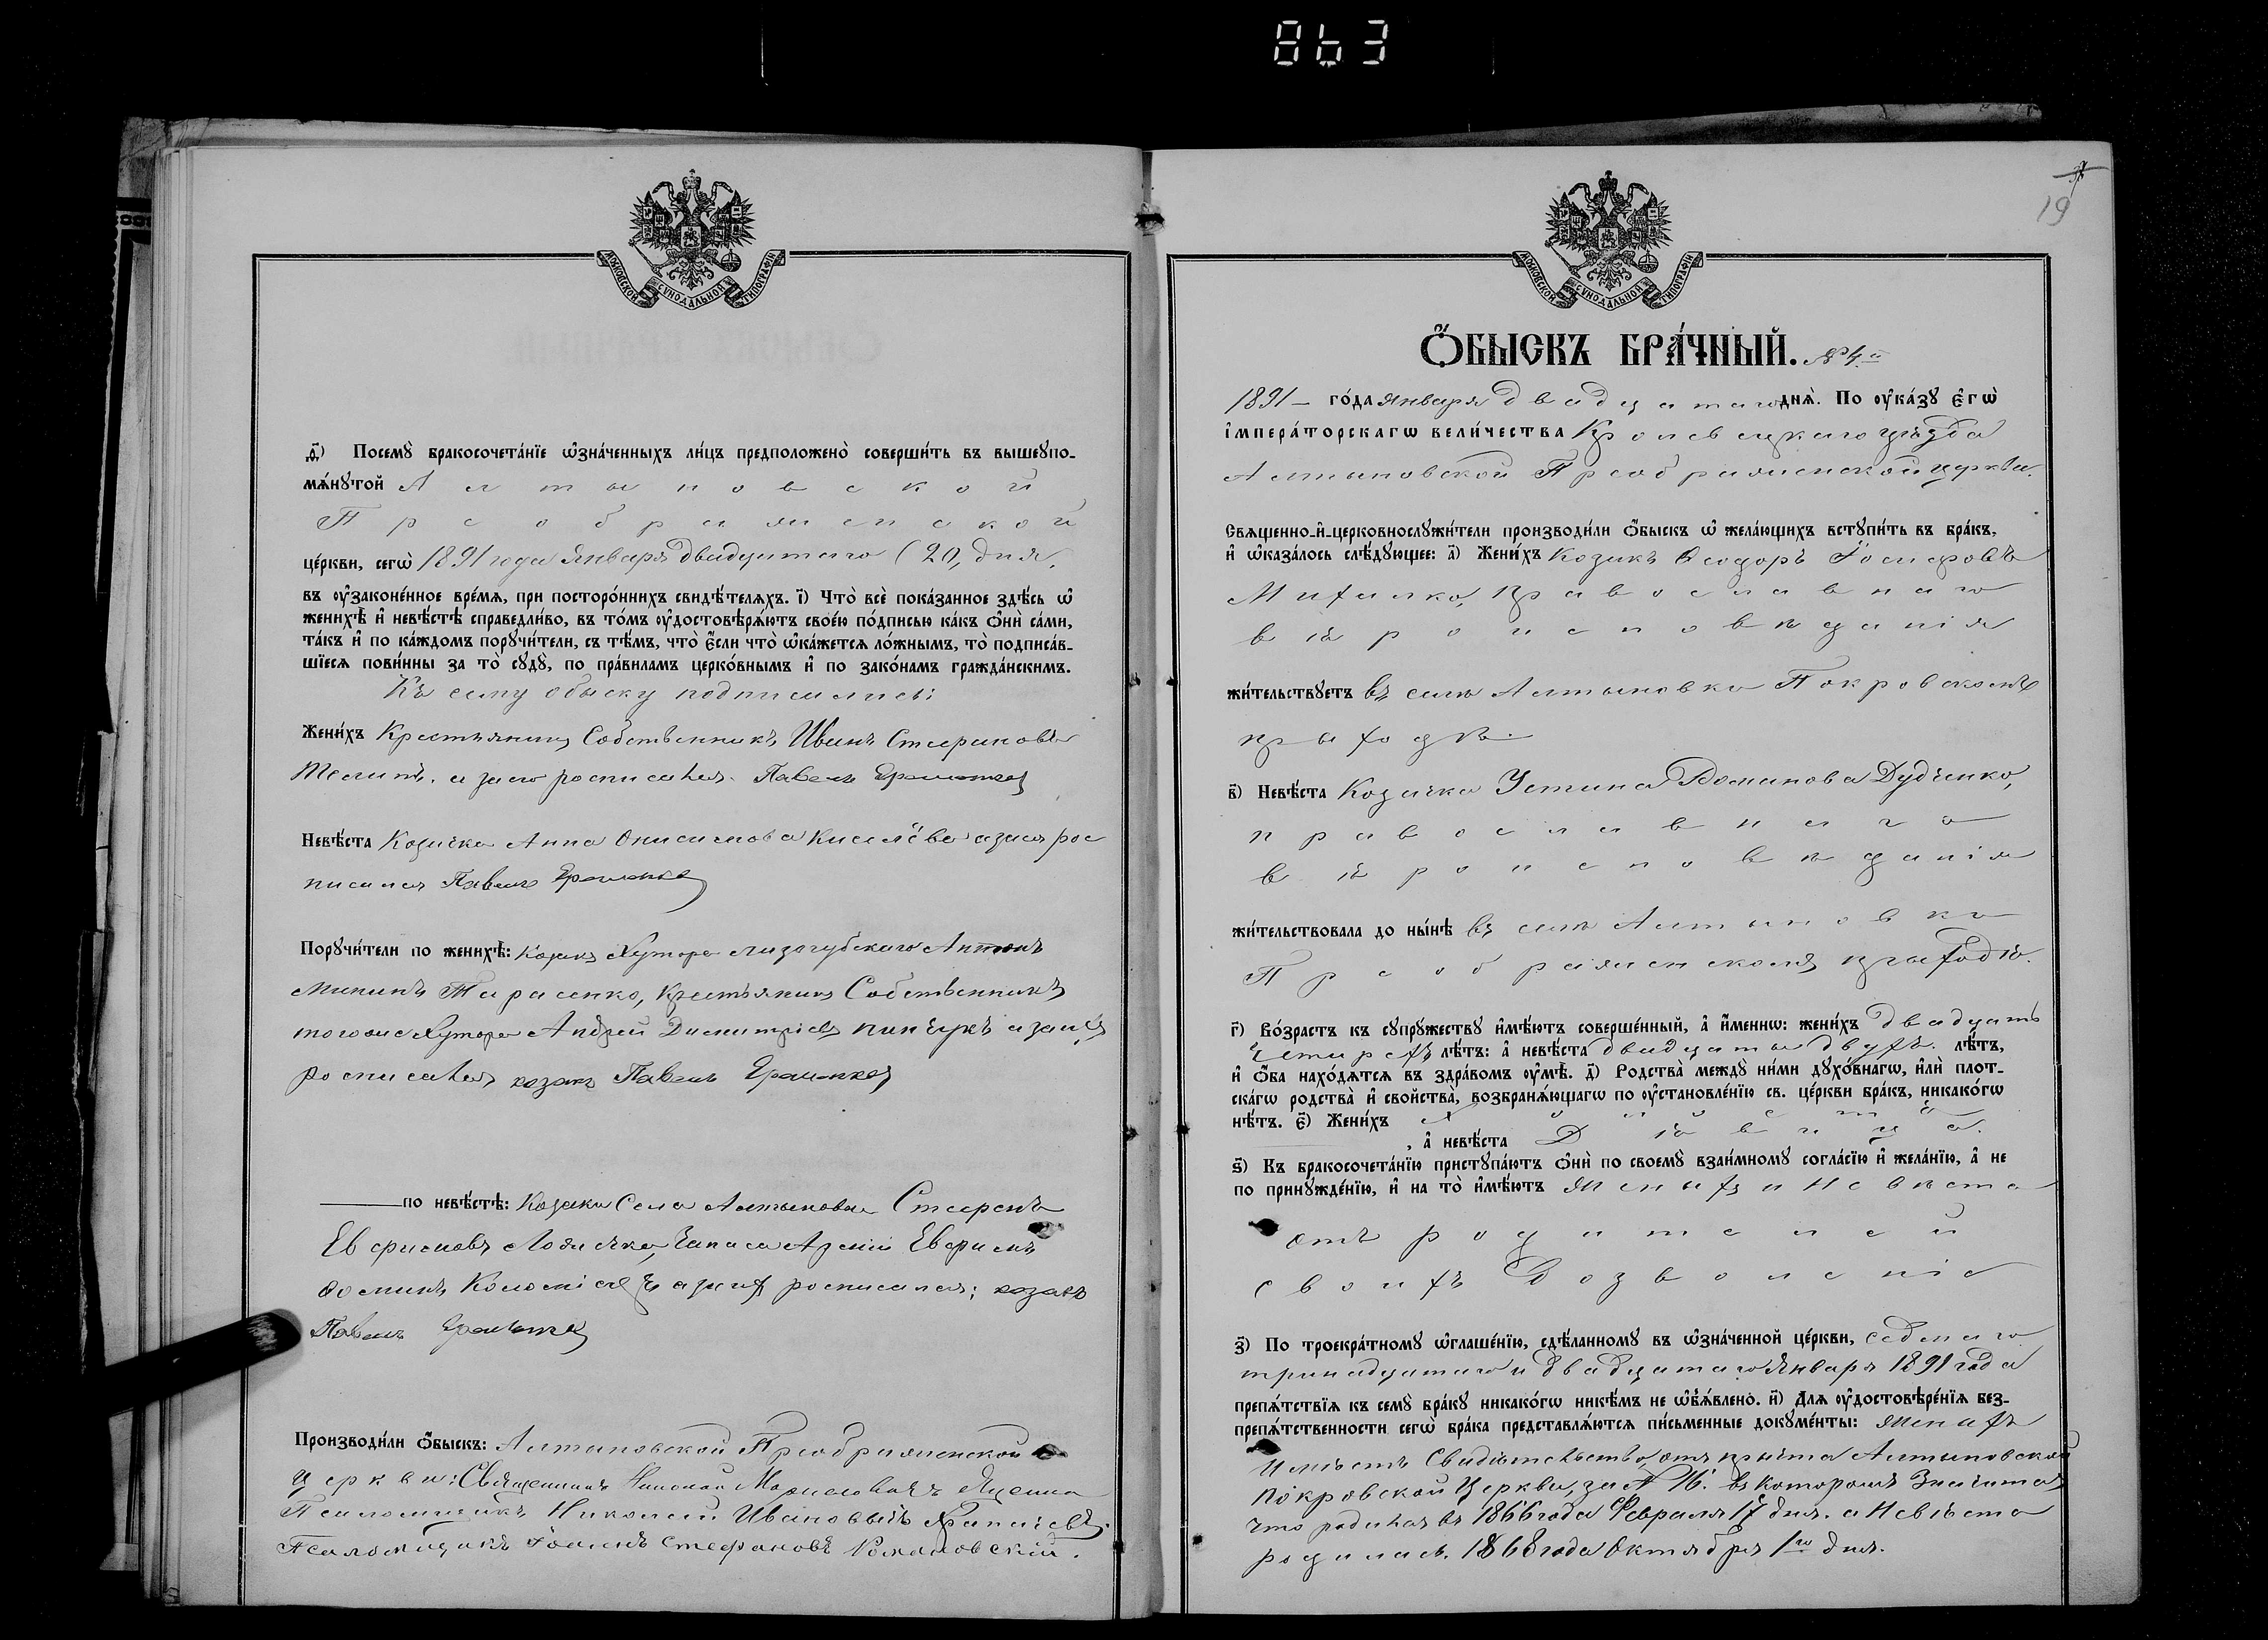 863
МОСКОВСКОЙ СѴНОДАЛЬНОЙ ТИПОГРАФІИ
д҃і) Посемꙋ̀ бракосочета́нїе ѡ҆зна́ченныхъ ли́цъ предположено̀ соверши́ть въ вышеꙋпо-
мѧ́нꙋтой Алтыновской
Преображенской
це́ркви, сегѡ̀ 1891 года Января двадцатаго (20, дня,
въ ᲂу҆зако́ненное вре́мѧ, при посторо́ннихъ свидѣ́телѧхъ. і҃) Что̀ всѐ пока́занное здѣ́сь ѡ҆
женихѣ̀ и҆ невѣ́стѣ справедли́во, въ то́мъ ᲂу҆достовѣрѧ́ютъ свое́ю по́дписью ка́къ ѻ҆нѝ са́ми,
та́къ и҆ по ка́ждомъ порꙋчи́тели, съ тѣ́мъ, что̀ є҆́сли что̀ ѡ҆ка́жетсѧ ло́жнымъ, то̀ подписа́в-
шїесѧ пови́нны за то̀ сꙋдꙋ̀, по пра́виламъ церко́внымъ и҆ по зако́намъ гражда́нскимъ.
Къ сему обыску подписались:
Жени́хъ Крестьянинъ Собственникъ Иванъ Стефановъ
а за него росписался Павелъ
Невѣ́ста Козачка Анна Онисимова Киселёва а за нея рос
писался Павелъ
Порꙋчи́тели по женихѣ̀: Козакъ Хутора Лизогубскаго Антонъ
Мининъ Тарасенко, Крестьянинъ Собственникъ
тогоже Хутора Андрей Димитріевъ Пинчукъ а за нихъ
росписался козакъ Павелъ
по невѣ́стѣ: Козаки Села Алтыновки Стефанъ
Евфимовъ
Коломіецъ а за нихъ росписался: козакъ
Павелъ
Производи́ли ѻ҆́быскъ: Алтыновской Преображенской
церкви: Священникъ Николай Яценко
Псаломщикъ Николай Ивановичъ
Псаломщикъ Іоаннъ Стефановъ Романовскій.
19
МОСКОВСКОЙ СѴНОДАЛЬНОЙ ТИПОГРАФІИ
Ѻ҆́БЫСКЪ БРА́ЧНЫЙ. № 4й
1891 – го́да Января двадцатаго днѧ̀. По ᲂу҆ка́зꙋ є҆гѡ̀
і҆мпера́торскагѡ вели́чества Кролевецкаго уѣзда
Алтыновской Преображенской церкви.
Свѧщенно-и҆-церковнослꙋжи́тели производи́ли ѻ҆́быскъ ѡ҆ жела́ющихъ встꙋпи́ть въ бра́къ,
и҆ ѡ҆каза́лось слѣ́дꙋющее: а҃) Жени́хъ Козакъ Ѳеодоръ Іосифовъ
Михалко, православнаго
вѣроисповѣданія
жи́тельствꙋетъ въ селѣ Алтыновкѣ Покровскомъ
приходѣ.
в҃) Невѣ́ста Козачка Устина Фоминова Дудченко,
православнаго
вѣроисповѣданія
жи́тельствовала до ны́нѣ въ селѣ Алтыновкѣ
Преображенскомъ приходѣ.
г҃) Во́зрастъ къ сꙋпрꙋжествꙋ и҆мѣ́ютъ соверше́нный, а҆ и҆́меннѡ: жени́хъ двадцать
четирехъ лѣ́тъ: а҆ невѣ́ста двадцаты двухъ лѣ́тъ,
и҆ ѻ҆́ба нахо́дѧтсѧ въ здра́вомъ ᲂу҆мѣ̀. д҃) Родства̀ междꙋ̀ ни́ми дꙋхо́внагѡ, и҆лѝ плот-
ска́гѡ родства̀ и҆ свойства̀, возбранѧ́ющагѡ по ᲂу҆становле́нїю св. це́ркви бра́къ, никако́гѡ
нѣ́тъ. є҃) Жени́хъ Холостъ
, а҆ невѣ́ста Дѣвица.
ѕ҃) Къ бракосочета́нїю пристꙋпа́ютъ ѻ҆нѝ по своемꙋ̀ взаи́мномꙋ согла́сїю и҆ жела́нїю, а҆ не
по принꙋжде́нїю, и҆ на то̀ и҆мѣ́ютъ Женихъ и Невѣста
отъ родителей
своихъ дозволеніе
з҃) По троекра́тномꙋ ѡ҆глаше́нїю, сдѣ́ланномꙋ въ ѡ҆зна́ченной це́ркви, седмаго
тринадцатаго и двадцатаго Января 1891 года
препѧ́тствїѧ къ семꙋ̀ бра́кꙋ никако́гѡ никѣ́мъ не ѡ҆б̾ѧ́влено. и҃) Длѧ ᲂу҆достовѣре́нїѧ без-
препѧ́тственности сегѡ̀ бра́ка представлѧ́ютсѧ пи́сьменные докꙋме́нты: Женихъ
имѣетъ Свидѣтельство, отъ причта Алтыновской
Покровской Церкви, за № 16. въ которомъ Значится
что родился въ 1866 года Февраля 17 дня. а Невѣста
родилась. 1868 года Октября 1го дня.